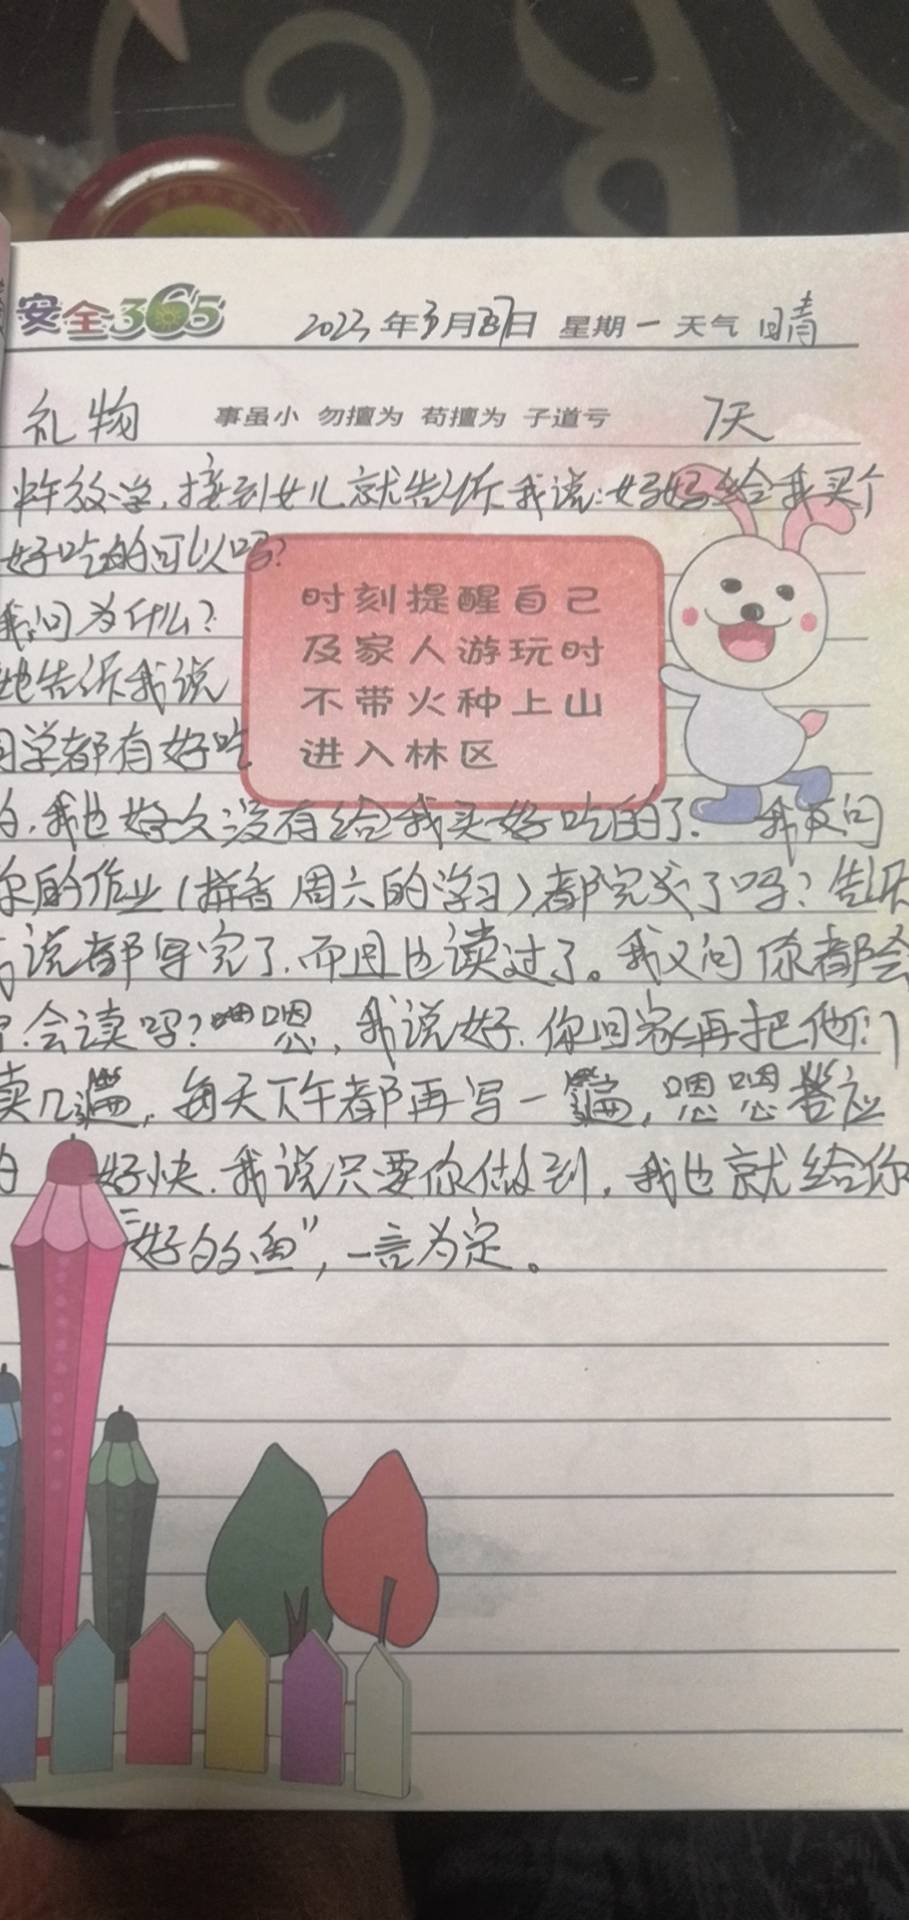 安全365
2023年3月27日 星期一 天气 晴
礼物 事虽小 勿擅为 苟擅为 子道亏 7天
午放学,接到女儿就告诉我说:妈妈给我买个
好吃的可以吗?
我问为什么?
她告诉我说
同学都有好吃
的,我也好久没有给我买好吃的了. 我又问
你的作业(拼音 周六的学习)都完成了吗?告诉
我说都写完了,而且也读过了。我又问你都会
会读吗?嗯嗯,我说好,你回家再把他们
读几遍,每天下午都再写一遍,嗯嗯答应
的 好快.我说只要你做到,我也就给你
"好的鱼",一言为定。
时刻提醒自己
及家人游玩时
不带火种上山
进入林区